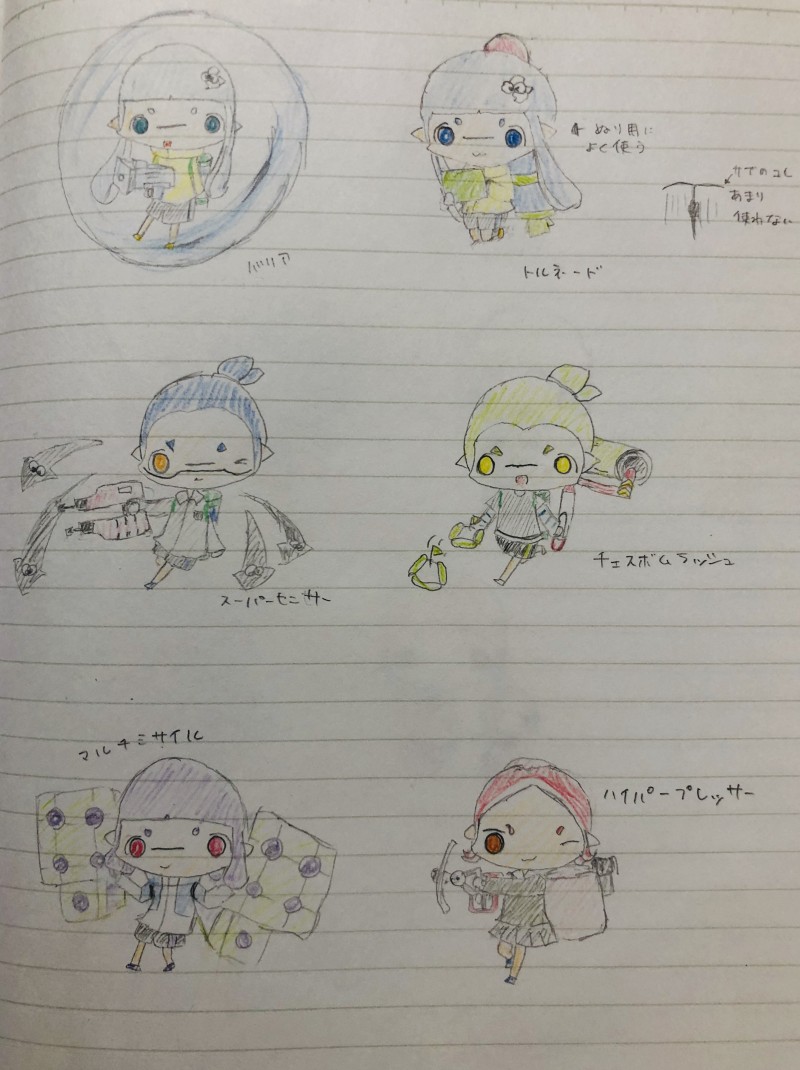 バリア
トルネード
← ぬり用に
よく使う
サブのコレ
あまり
使わない
スーパーセンサー
チェスボムラッシュ
マルチミサイル
ハイパープレッサー